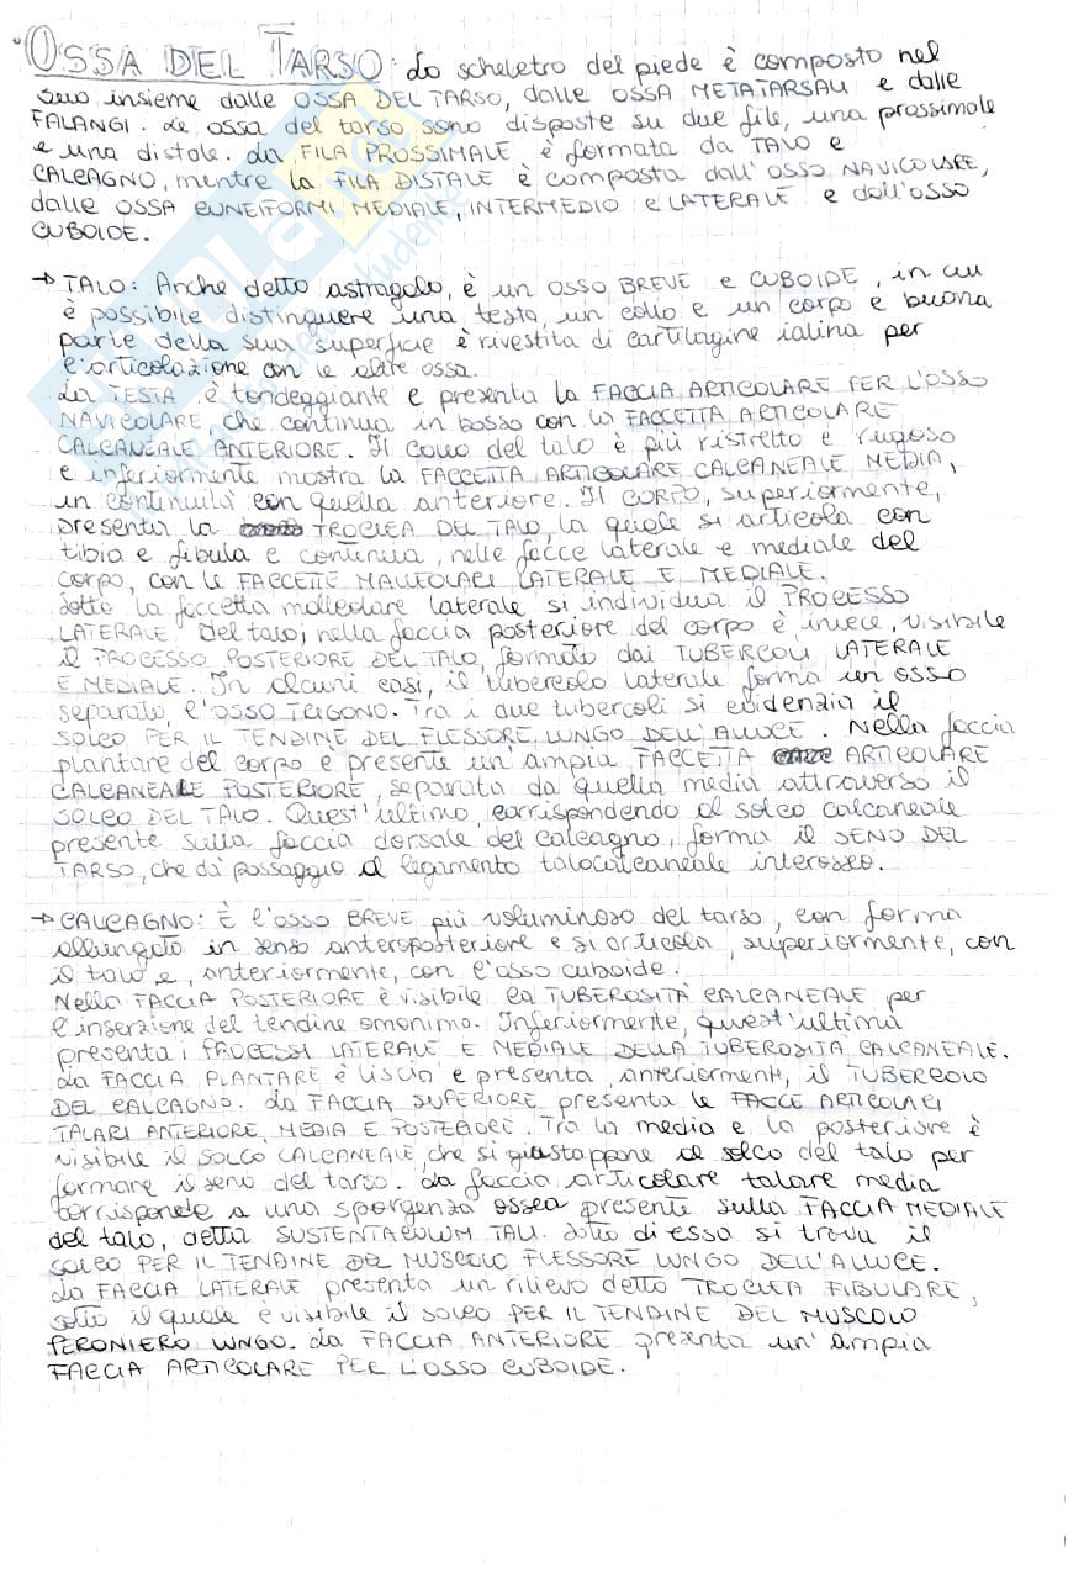 OSSA DEL TARSO: Lo scheletro del piede è composto nel
suo insieme dalle OSSA DEL TARSO, dalle OSSA METATARSALI e dalle
FALANGI. Le ossa del tarso sono disposte su due file, una prossimale
e una distale. La FILA PROSSIMALE è formata da TALO e
CALCAGNO, mentre la FILA DISTALE è composta dall'OSSO NAVICOLARE,
dalle OSSA CUNEIFORMI MEDIALE, INTERMEDIO e LATERALE e dall'OSSO
CUBOIDE.
→ TALO: Anche detto astragalo, è un OSSO BREVE e CUBOIDE, in cui
è possibile distinguere una testa, un collo e un corpo e buona
parte della sua superficie è rivestita di cartilagine ialina per
l'articolazione con le altre ossa.
La TESTA è tondeggiante e presenta la FACCIA ARTICOLARE PER L'OSSO
NAVICOLARE che continua in basso con la FACCETTA ARTICOLARE
CALCANEALE ANTERIORE. Il COLLO del talo è più ristretto e rugoso
e inferiormente mostra la FACCETTA ARTICOLARE CALCANEALE MEDIA,
in continuità con quella anteriore. Il CORPO, superiormente,
presenta la TROCLEA DEL TALO, la quale si articola con
tibia e fibula e continua, nelle facce laterale e mediale del
corpo, con le FACCETTE MALLEOLARI LATERALE E MEDIALE.
Sotto la faccetta malleolare laterale si individua il PROCESSO
LATERALE del talo; nella faccia posteriore del corpo è, invece, visibile
il PROCESSO POSTERIORE DEL TALO, formato dai TUBERCOLI LATERALE
E MEDIALE. In alcuni casi, il tubercolo laterale forma un osso
separato, l'OSSO TRIGONO. Tra i due tubercoli si evidenzia il
SOLCO PER IL TENDINE DEL FLESSORE LUNGO DELL'ALLUCE. Nella faccia
plantare del corpo è presente un'ampia FACCETTA ARTICOLARE
CALCANEALE POSTERIORE, separata da quella media attraverso il
SOLCO DEL TALO. Quest'ultimo, corrispondendo al solco calcaneale
presente sulla faccia dorsale del calcagno, forma il SENO DEL
TARSO, che dà passaggio al legamento talocalcaneale interosseo.
→ CALCAGNO: È l'osso BREVE più voluminoso del tarso, con forma
allungata in senso anteroposteriore e si articola, superiormente, con
il talo e, anteriormente, con l'osso cuboide.
Nella FACCIA POSTERIORE è visibile la TUBEROSITÀ CALCANEALE per
l'inserzione del tendine omonimo. Inferiormente, quest'ultima
presenta i PROCESSI LATERALE E MEDIALE DELLA TUBEROSITÀ CALCANEALE.
La FACCIA PLANTARE è liscia e presenta, anteriormente, il TUBERCOLO
DEL CALCAGNO. La FACCIA SUPERIORE presenta le FACCE ARTICOLARI
TALARI ANTERIORE, MEDIA E POSTERIORE. Tra la media e la posteriore è
visibile il SOLCO CALCANEALE, che si giustappone al solco del talo per
formare il seno del tarso. La faccia articolare talare media
corrisponde a una sporgenza ossea presente sulla FACCIA MEDIALE
del talo, detta SUSTENTACULUM TALI. Sotto di essa si trova il
SOLCO PER IL TENDINE DEL MUSCOLO FLESSORE LUNGO DELL'ALLUCE.
La FACCIA LATERALE presenta un rilievo detto TROCLEA FIBULARE,
sotto il quale è visibile il SOLCO PER IL TENDINE DEL MUSCOLO
PERONIERO LUNGO. La FACCIA ANTERIORE presenta un'ampia
FACCIA ARTICOLARE PER L'OSSO CUBOIDE.